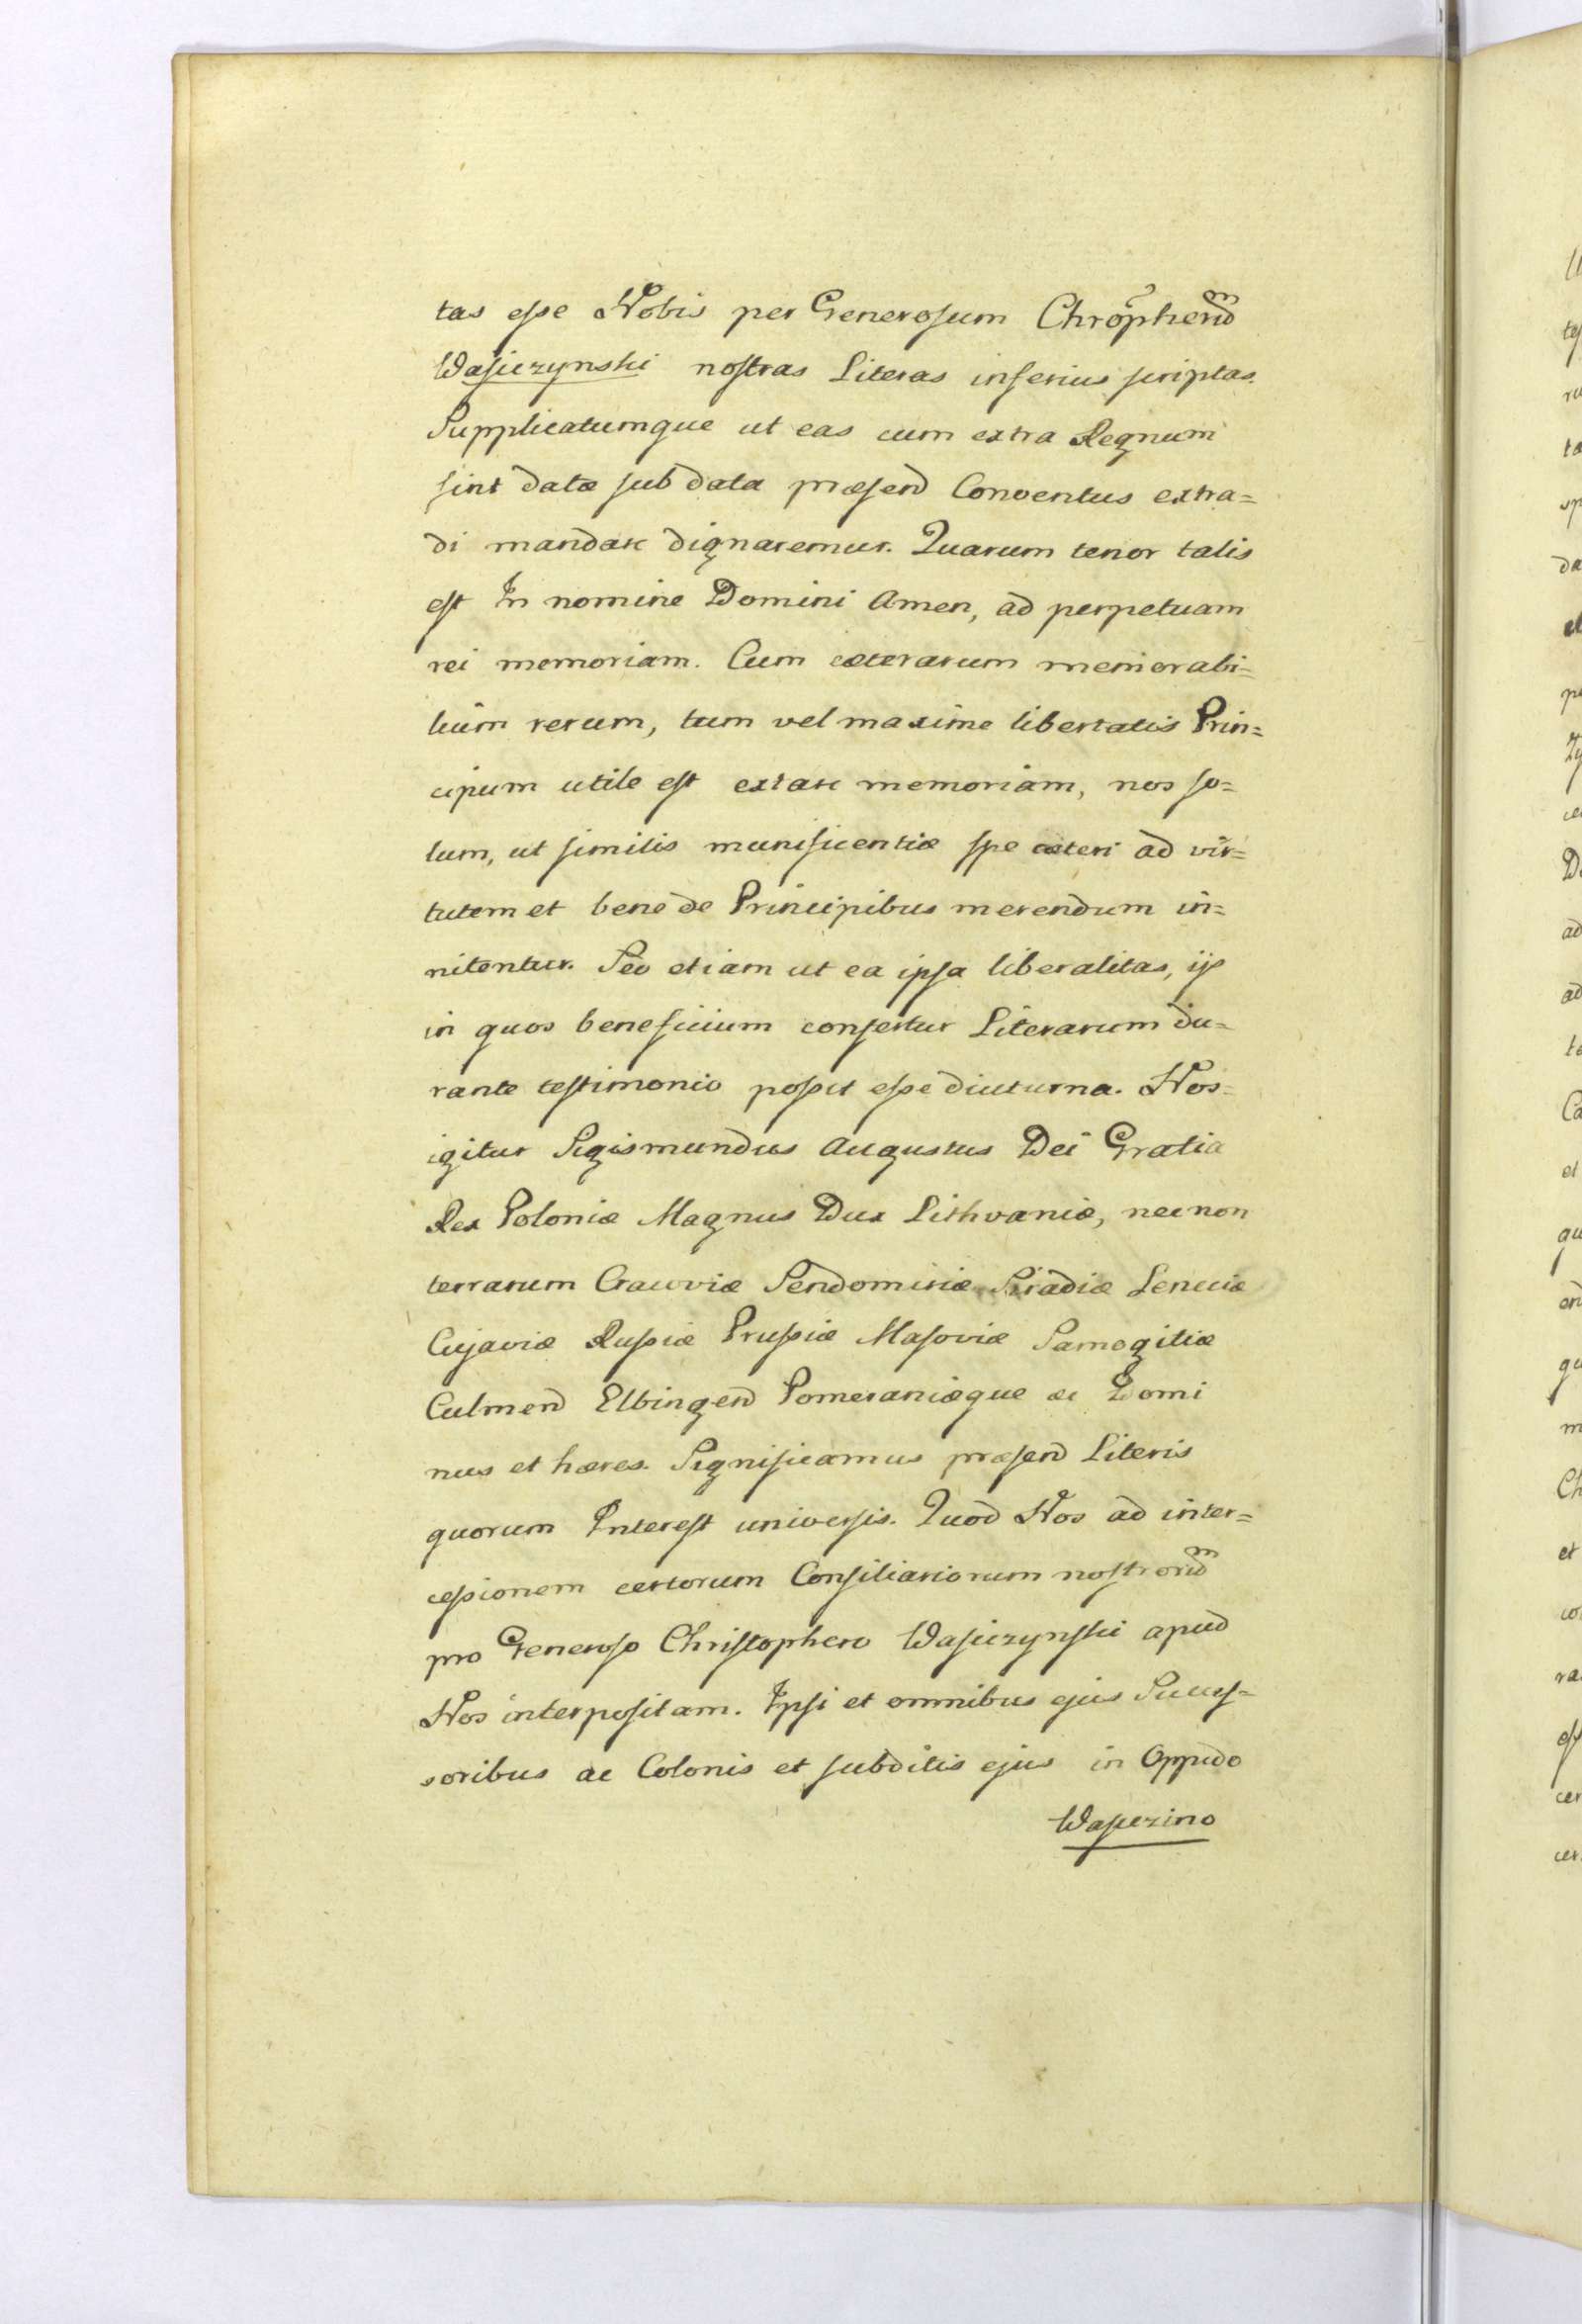 tas eſse Nobis per Generosum Chrōpherūm
Waſiczynski nostras Literas inferius ſcriptas.
Supplicatumque ut eas cum extra Regnum
ſint datæ ſub data præſend Conventus extra=
di mandare dignaremur. Quarum tenor talis
eſt In nomine Domini Amen, ad perpetuam
rei memoriam. Cum cæterarum memorabi=
lium rerum, tum vel maxime libertatis Prin=
cipum utile eſt extare memoriam, nos ſo=
lum, ut ſimilis munificentiæ ſpe cæteri ad vir=
tutem et bene de Principibus merendum in=
nitentur. Sed etiam ut ea ipſa liberalitas, ijs
in quos beneficium confertur Literarum du=
rante teſtimonio poſsit eſse diuturna. Nos=
igitur Sigismundus Augustus Dei Gratia
Rex Poloniæ Magnus Dux Lithvaniæ, necnon
terrarum Cracoviæ Sendomiriæ Siradiæ Lenciciæ
Cujaviæ Ruſsiæ Pruſsiæ Maſoviæ Samogitiæ
Culmend Elbingend Pomeraniæque ac Domi
nus et hæres. Significamus præſend Literis
quorum Intereſt univerſis. Quod Nos ad inter=
ceſsionem certorum Conſiliariorum noſtrorūm
pro Generoſo Chriſtophero Waſiczynſki apud
Nos interpoſitam. Ipſi et omnibus ejus Succeſ=
soribus ac Colonis et ſubditis ejus in Oppido
Waſiczino